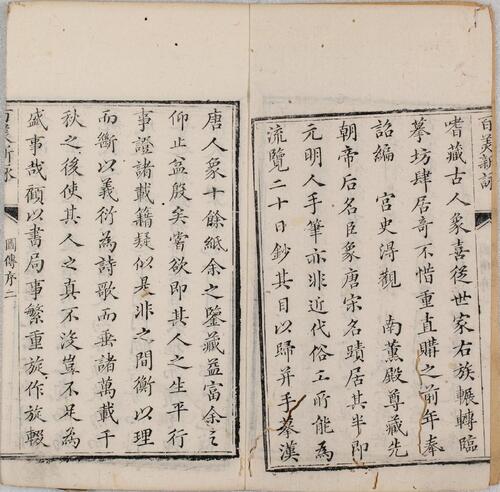 百美新詠
嗜藏古人象喜從世家右族輾轉臨
摹坊肆居奇不惜重直購之前年奉
詔編　宮史得觀　南薰殿尊藏先
朝帝后名臣象唐宋名蹟居其半即
元明人手筆亦非近代俗工所能為
流覽二十日鈔其目以歸并手摹漢
唐人象十餘紙余之鑒藏益富余之
仰止益殷矣嘗欲即其人之生平行
事證諸載籍疑似是非之間衡以理
而斷以義衍為詩歌而垂諸萬載千
秋之後使其人之真不沒豈不足為
盛事哉顧以書局事繁重旋作旋輟
百美新詠
圖傳序二